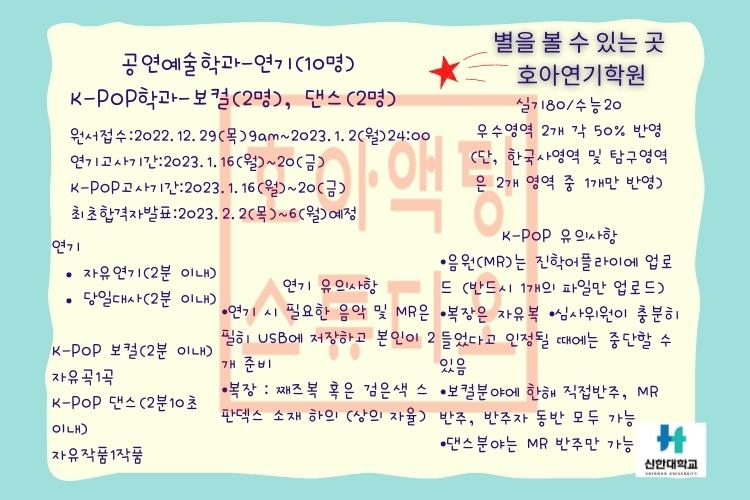 별을 볼 수 있는 곳
호아연기학원
공연예술학과-연기(10명)
K-POP학과-보컬(2명), 댄스(2명)
원서접수:2022.12.29(목)9am~2023.1.2(월)24:00
연기고사기간:2023.1.16(월)~20(금)
K-POP고사기간:2023.1.16(월)~20(금)
최초합격자발표:2023.2.2(목)~6(월)예정
실기80/수능20
우수영역 2개 각 50% 반영
(단, 한국사영역 및 탐구영역
은 2개 영역 중 1개만 반영)
연기
• 자유연기(2분 이내)
• 당일대사(2분 이내)
K-POP 보컬(2분 이내)
자유곡1곡
K-POP 댄스(2분10초
이내)
자유작품1작품
연기 유의사항
•연기 시 필요한 음악 및 MR은
필히 USB에 저장하고 본인이 2
개 준비
•복장 : 째즈복 혹은 검은색 스
판덱스 소재 하의 (상의 자율)
K-POP 유의사항
•음원(MR)는 진학어플라이에 업로
드 (반드시 1개의 파일만 업로드)
•복장은 자유복 •심사위원이 충분히
들었다고 인정될 때에는 중단할 수
있음
•보컬분야에 한해 직접반주, MR
반주, 반주자 동반 모두 가능
•댄스분야는 MR 반주만 가능
호아액팅
스튜디오
신한대학교
SHINHAN UNIVERSITY